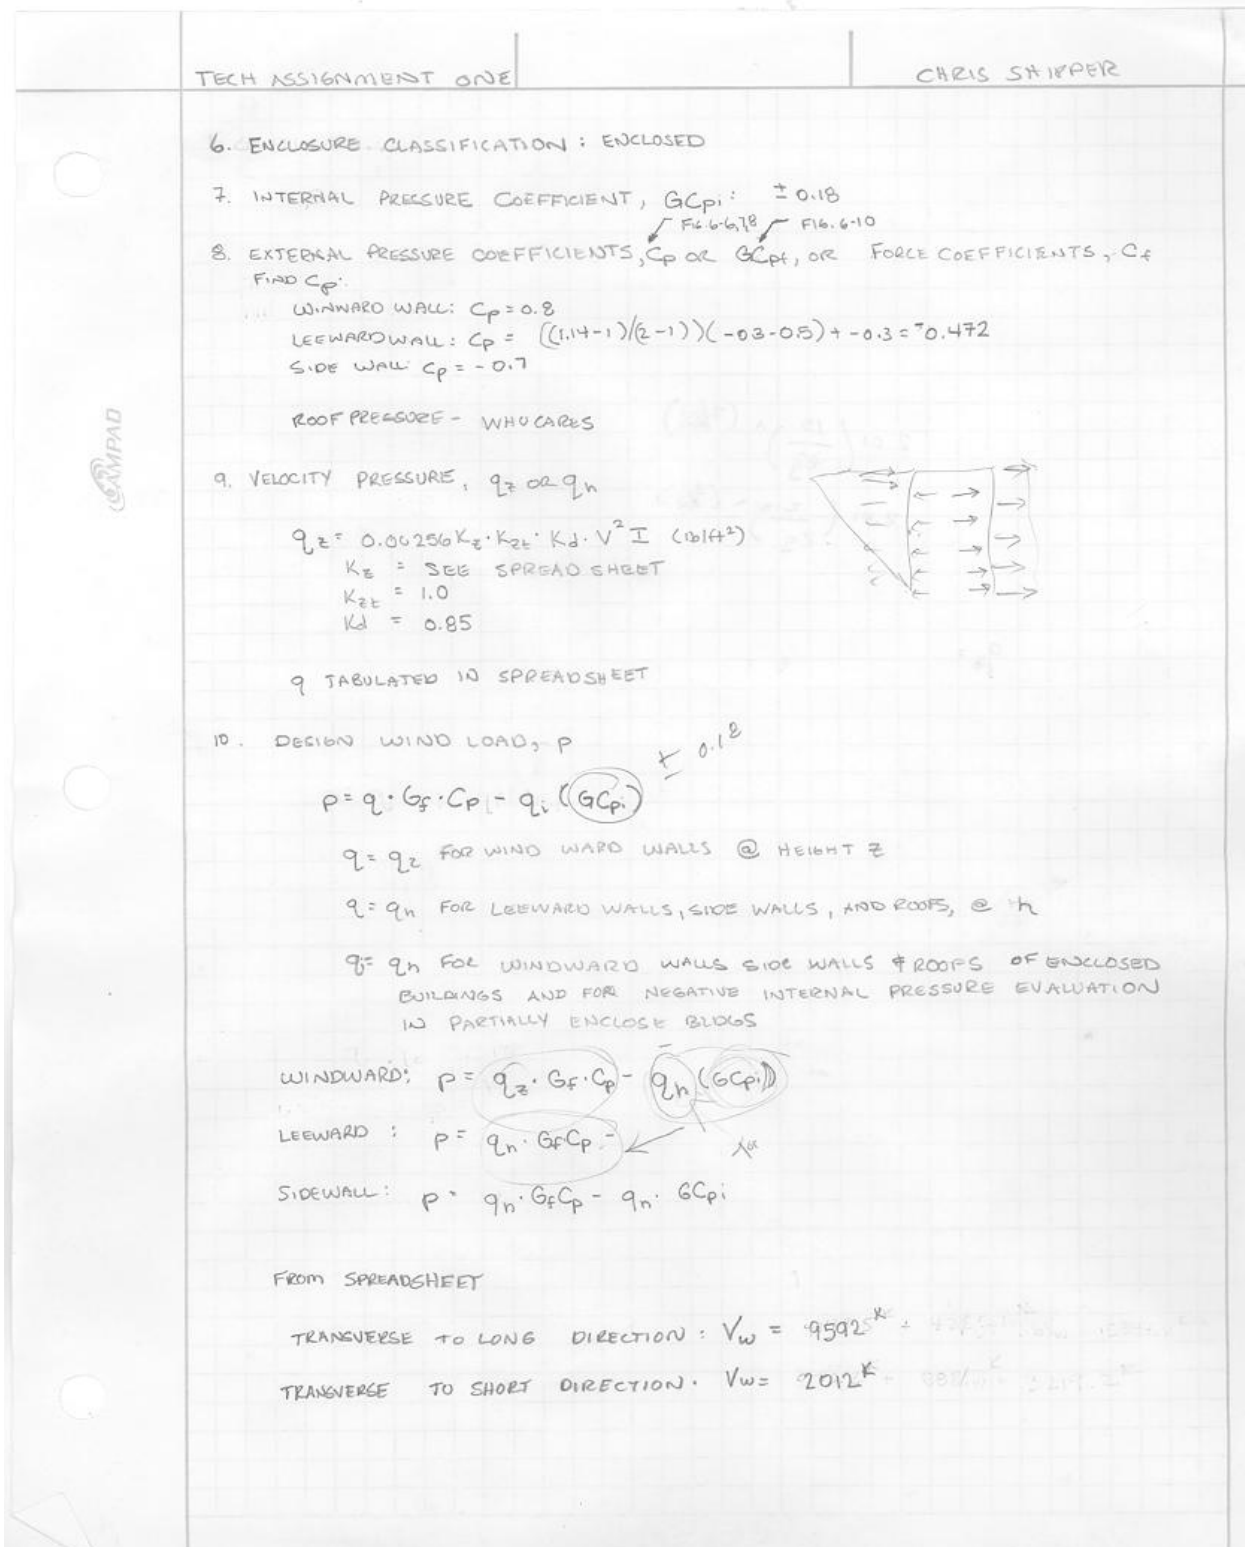 TECH ASSIGNMENT ONE
CHRIS SHIPPER
6. ENCLOSURE CLASSIFICATION: ENCLOSED
7. INTERNAL PRESSURE COEFFICIENT, GCpi: ± 0.18
FIG. 6-6,7,8 FIG. 6-10
8. EXTERNAL PRESSURE COEFFICIENTS, Cp OR GCpf, OR FORCE COEFFICIENTS, Cf
FIND Cp:
WINWARD WALL: Cp = 0.8
LEEWARD WALL: Cp = ((1.14-1)/(2-1))(-0.3-0.5) + -0.3 = -0.472
SIDE WALL: Cp = -0.7
ROOF PRESSURE - WHO CARES
CAMPAD
9. VELOCITY PRESSURE, qz OR qh
qz = 0.00256 Kz · Kzt · Kd · V² I (lb/ft²)
Kz = SEE SPREAD SHEET
Kzt = 1.0
Kd = 0.85
q TABULATED IN SPREADSHEET
10. DESIGN WIND LOAD, P
± 0.18
p = q · Gf · Cp - qi (GCpi)
q = qz FOR WIND WARD WALLS @ HEIGHT Z
q = qh FOR LEEWARD WALLS, SIDE WALLS, AND ROOFS, @ h
qi = qh FOR WINDWARD WALLS SIDE WALLS & ROOFS OF ENCLOSED
BUILDINGS AND FOR NEGATIVE INTERNAL PRESSURE EVALUATION
IN PARTIALLY ENCLOSE BLDGS
WINDWARD: p = qz · Gf · Cp - qh (GCpi)
LEEWARD : p = qh · GfCp -
SIDEWALL: p = qh · GfCp - qh · GCpi
FROM SPREADSHEET
TRANSVERSE TO LONG DIRECTION: Vw = 9592 K
TRANSVERSE TO SHORT DIRECTION. Vw = 2012 K